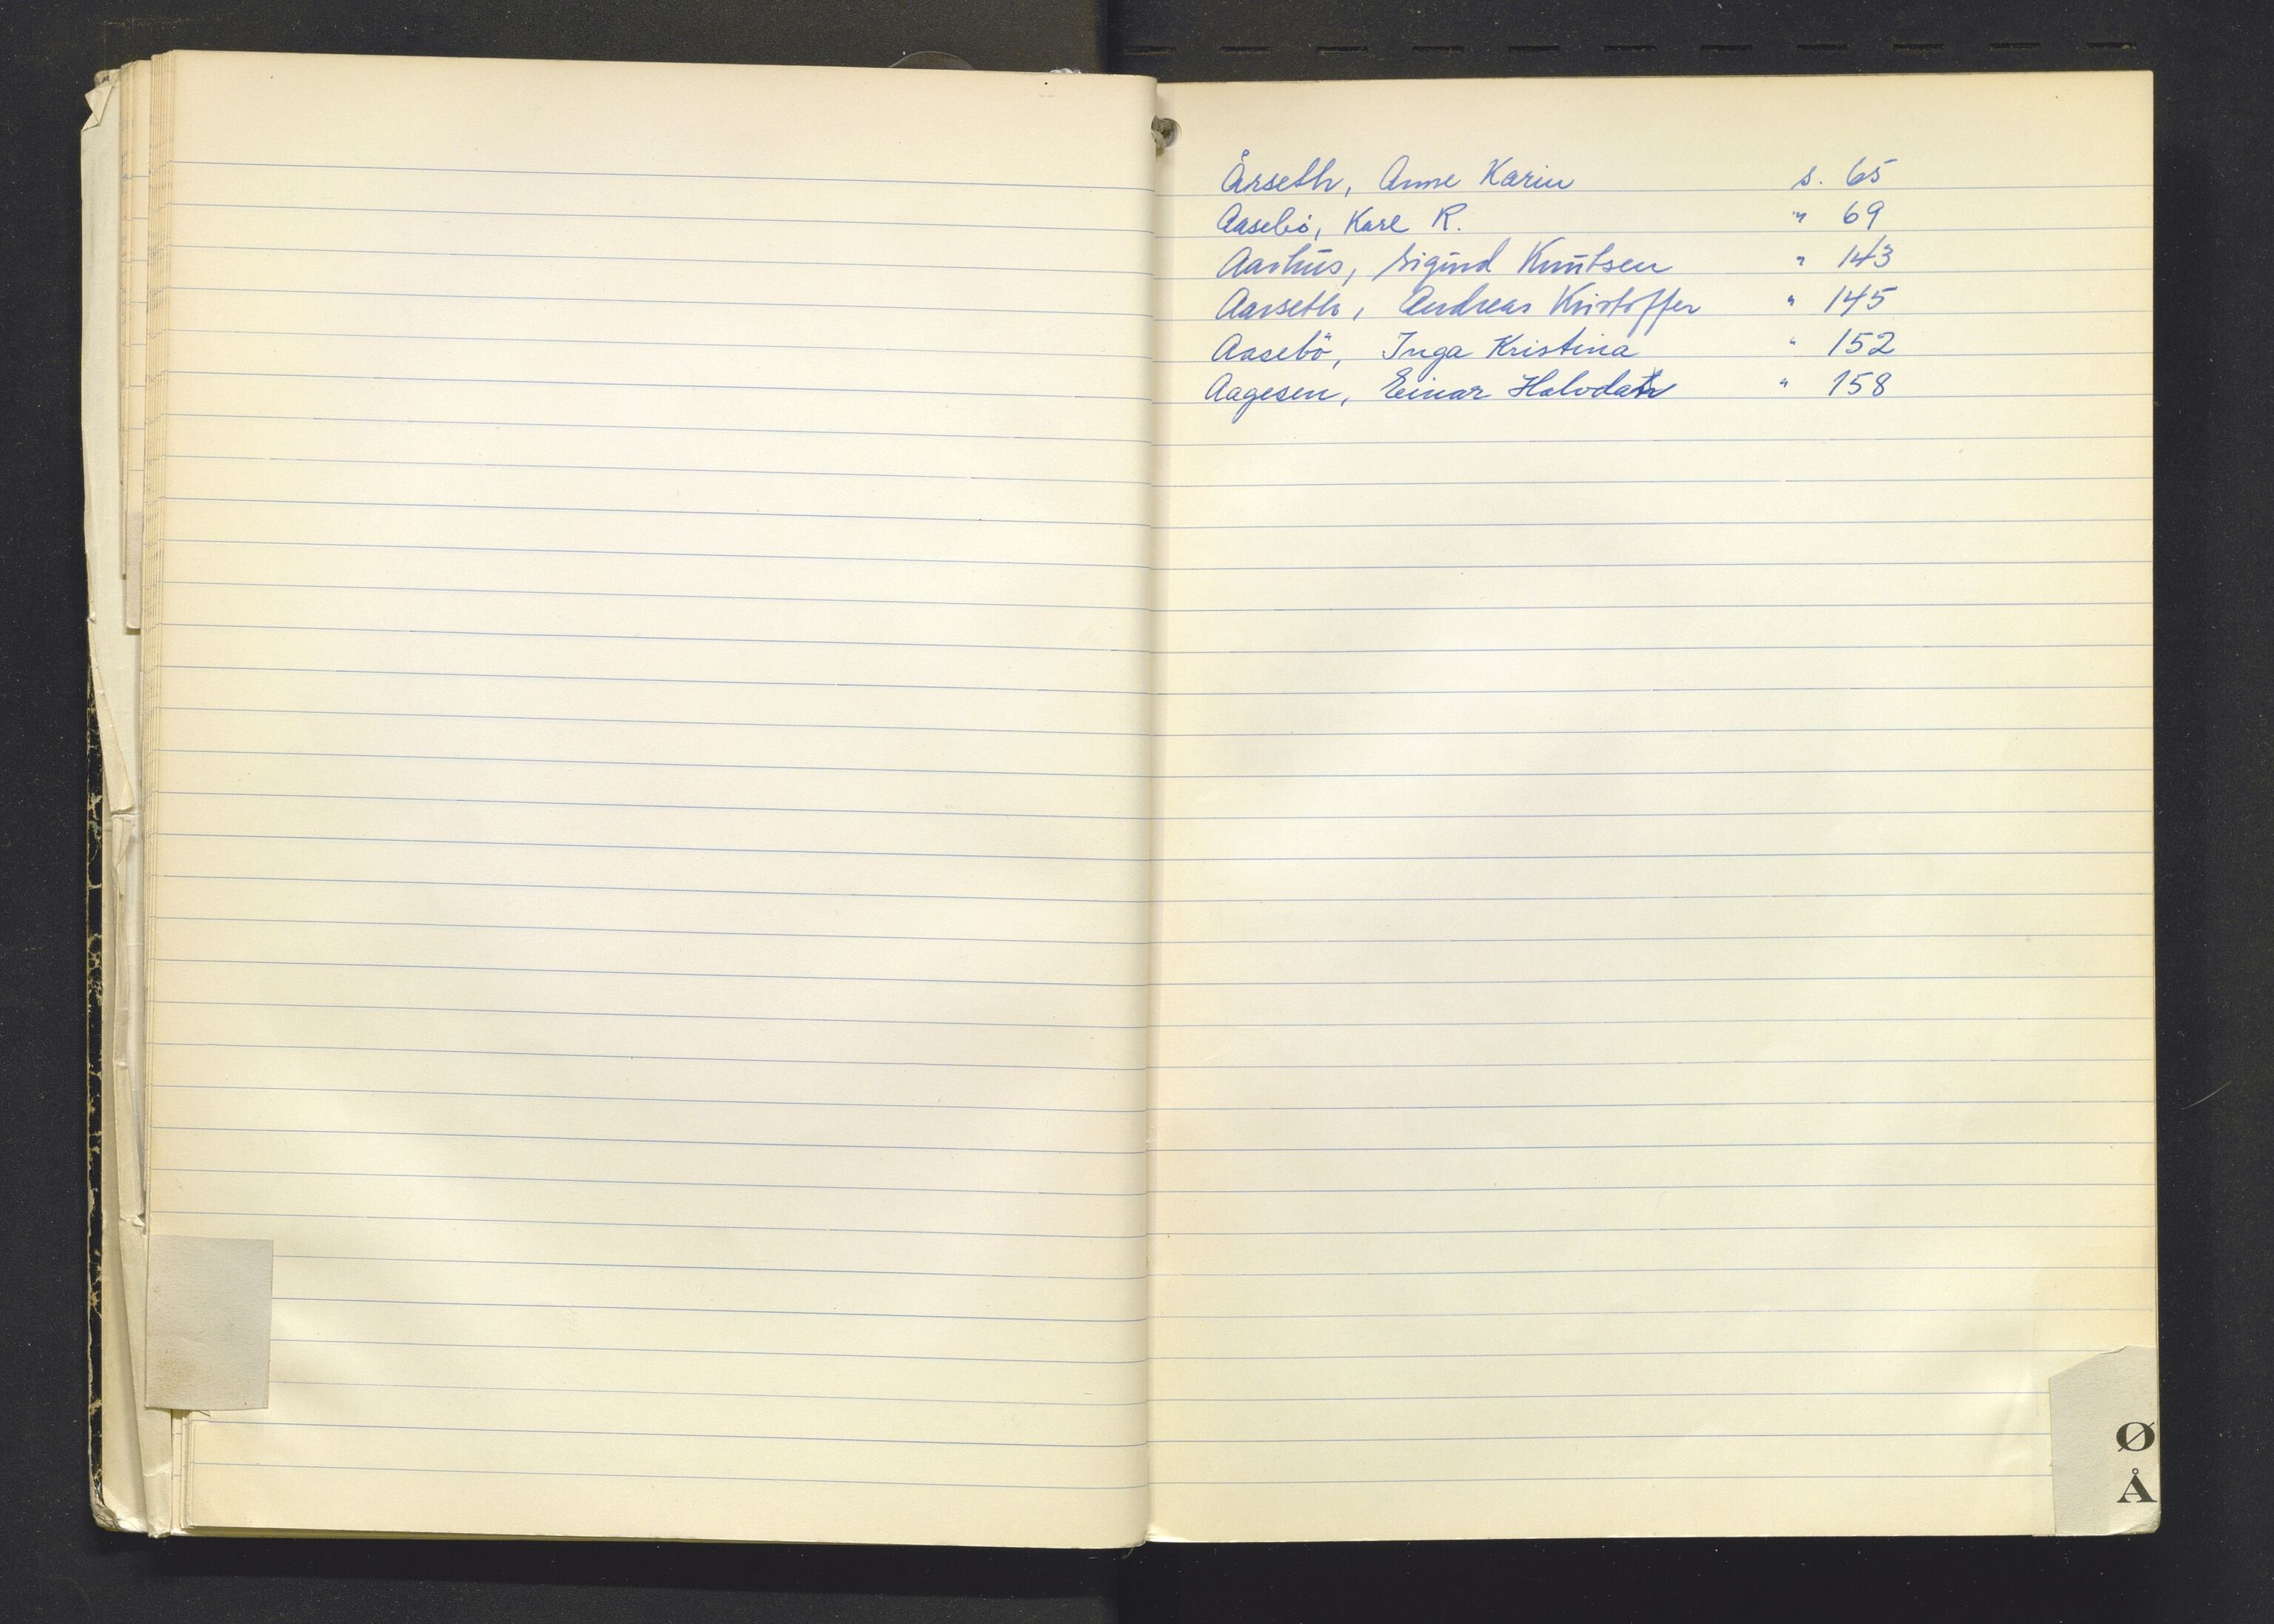 Årseth, Anne Karin s. 65
Aasebö, Kare R. " 69
Aarhus, Sigurd Knutsen " 143
Aarseth, Andreas Kristoffer " 145
Aasebö, Inga Kristina " 152
Aagesen, Einar Halvdan " 158
Ø
Å